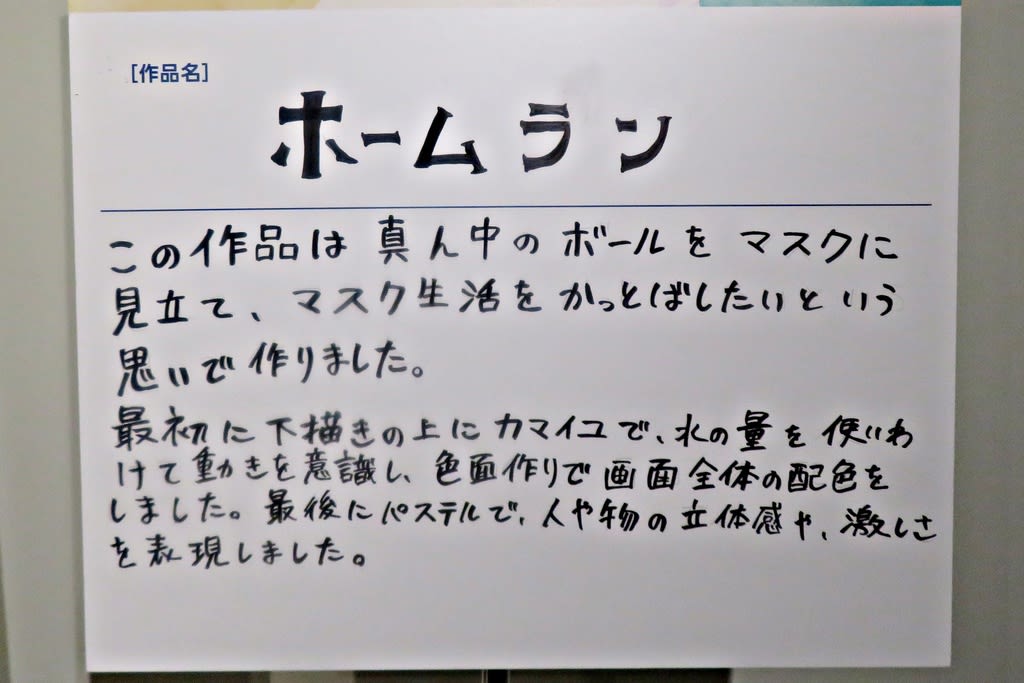 [作品名]
ホームラン
この作品は真ん中のボールをマスクに
見立て、マスク生活をかっとばしたいという
思いで作りました。
最初に下描きの上にカマイユで、水の量を使いわ
けて動かきを意識し、色面作りで画面全体の配色を
しました。最後にパステルで、人や物の立体感や、激しさ
を表現しました。